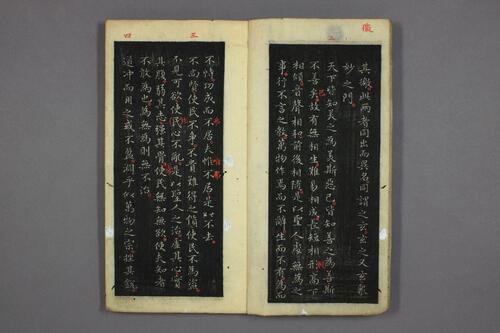 徼
二
其徼此兩者同出而異名同謂之玄玄之又玄衆
妙之門
天下皆知美之為美斯惡已皆知善之為善斯
不善矣故有無相生難易相成長短相形高下
相傾音聲相和前後相隨是以聖人處無為之
事行不言之教萬物作焉而不辭生而不有為而
三
不恃功成而不居夫惟不居是以不去
不尚賢使民不爭不貴難得之貨使民不為盜
不見可欲使民心不亂是以聖人之治虛其心實
其腹弱其志強其骨常使民無知無欲使夫知者
不敢為也為無為則無不治
道冲而用之或不盈淵乎似萬物之宗挫其銳
四